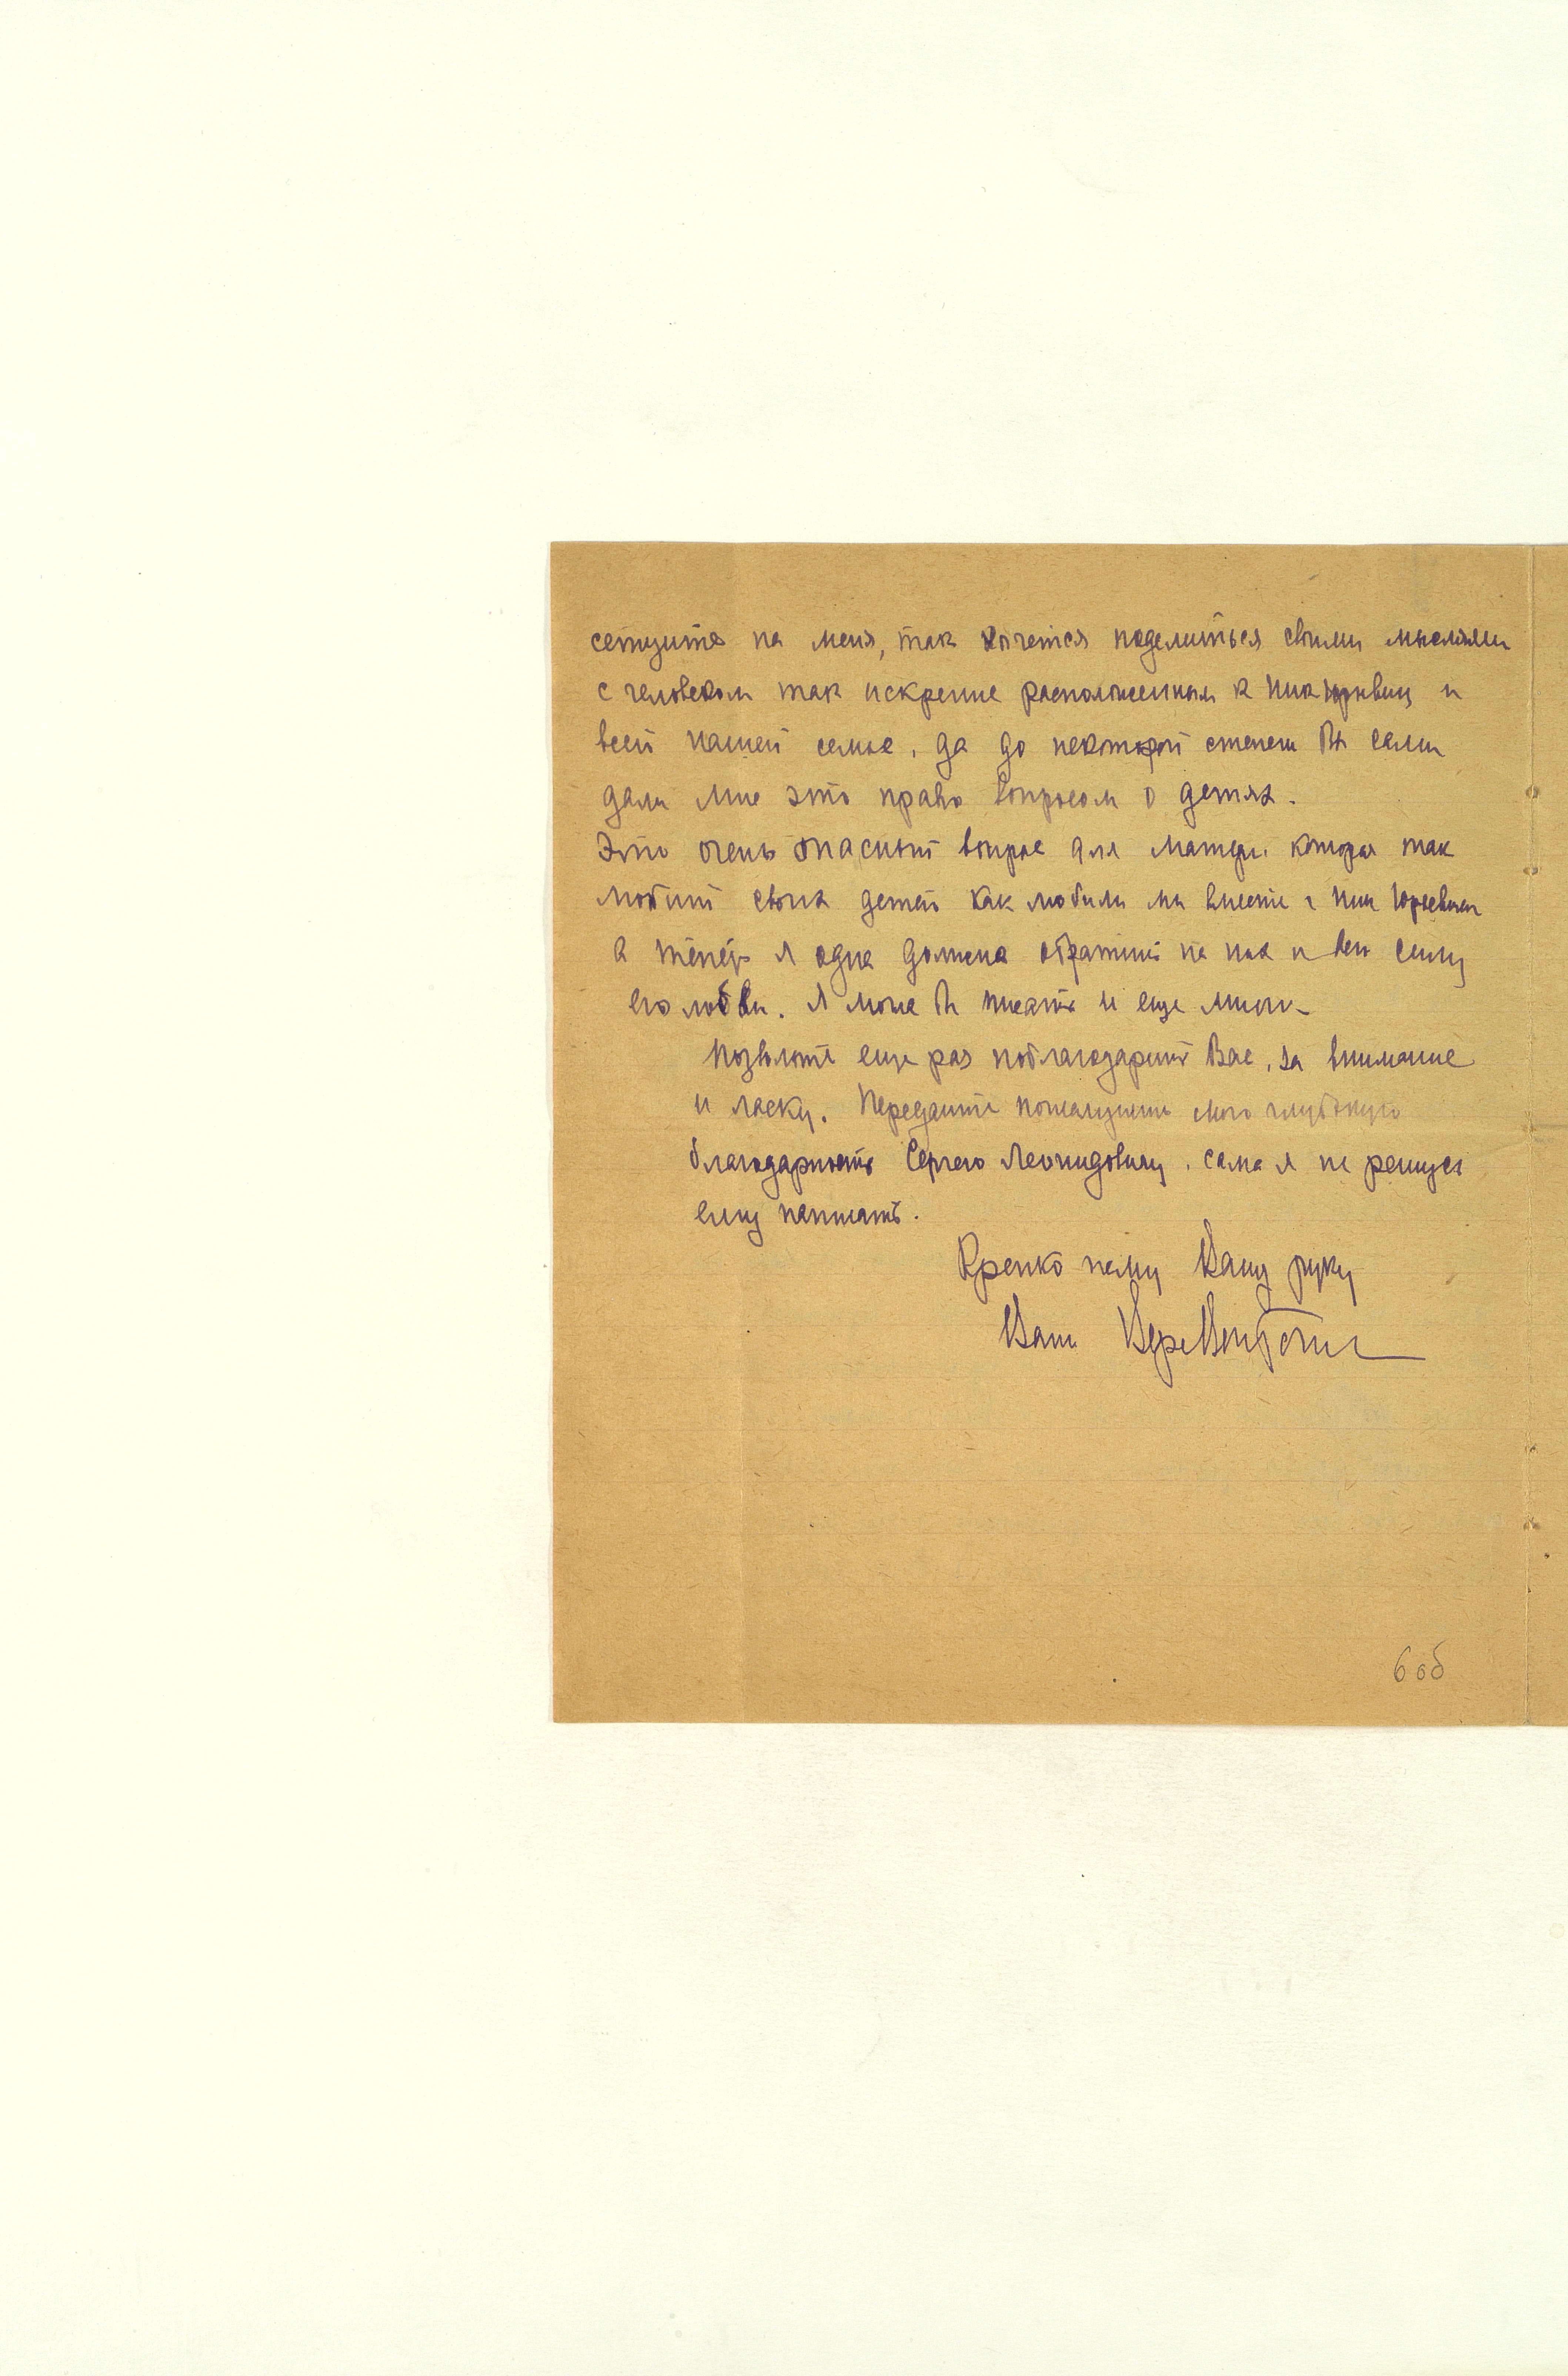 сетуйте на меня, так хочется поделиться своими мыслями
с человеком так искренне расположенным к Ник Юрьевичу и
всей нашей семье, да до некоторой степени Вы сами
дали мне это право вопросом о детях.
Это очень опасный вопрос для матери которая так
любит своих детей как любили мы вместе с Ник Юрьевичем
а теперь я одна должна обратить на них и всю силу
его любви. Я могла бы писать и еще много
Позвольте еще раз поблагодарить Вас, за внимание
и ласку. Передайте пожалуйста мою глубокую
благодарность Сергею Леонидовичу, сама я не решусь
ему написать.
Крепко жму Вашу руку
Ваша Вера
6 об